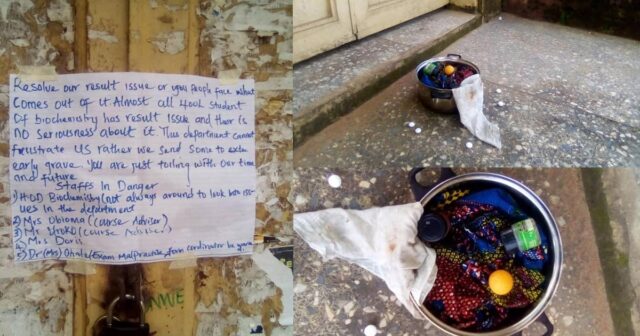 Resolve our result issue or you people face what
Comes out of it. Almost all 400L student
Of biochemistry has result issue and ther is
no seriousness about it. This department cannot
frustrate us rather we send some to extra
early grave. You are just toiling with our time
and future.
Staffs In Danger
1) HOD Biochemistry (not always around to look into iss-
ues in the department
2) Mrs Obioma (Course Adviser)
3) Mr (Course Adviser)
4) Mrs Doris
5) Dr (Mrs) /Exam Malpractice form cordinator be